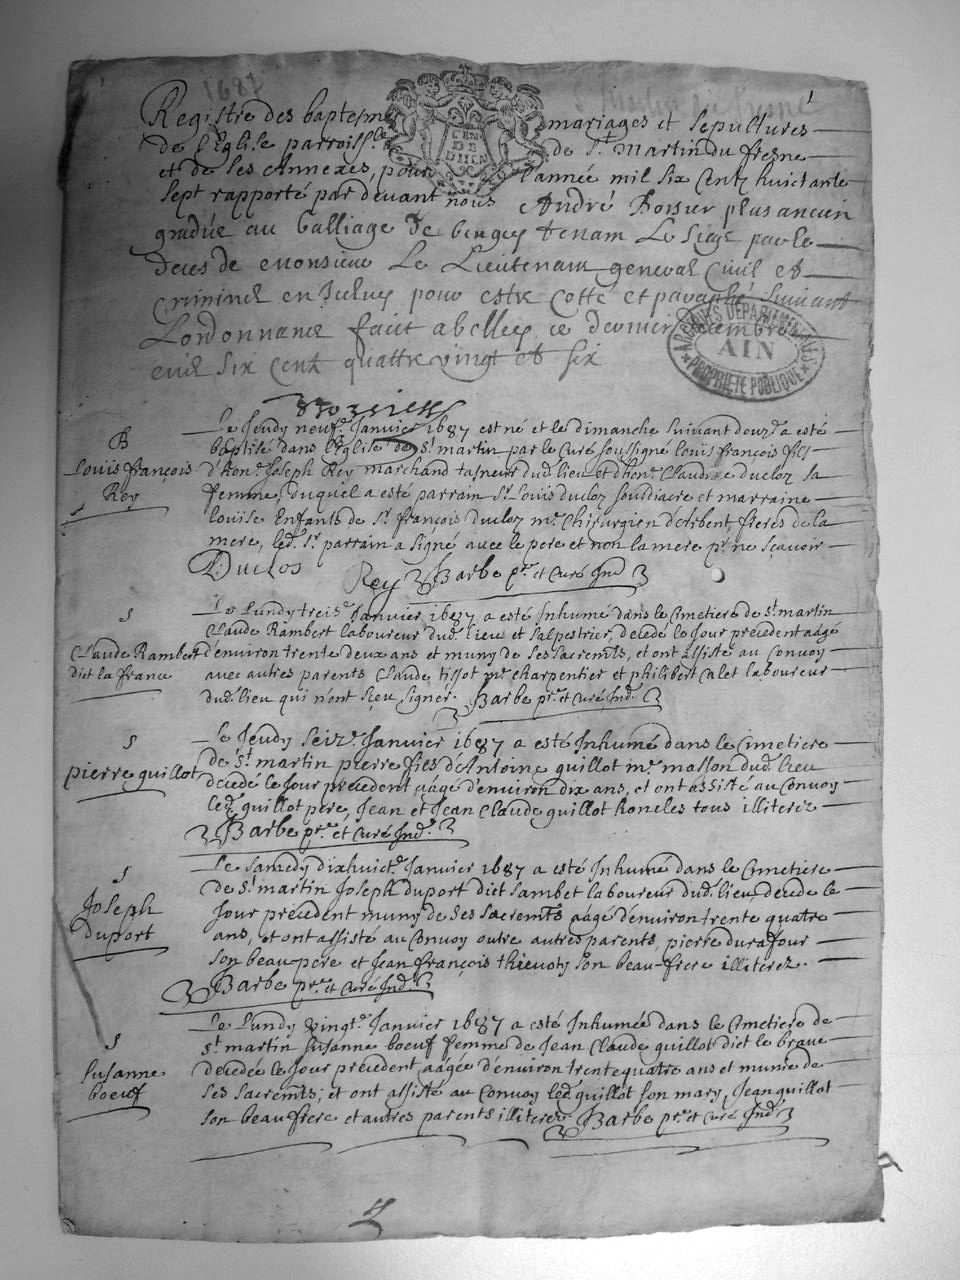 1687
1
Registre des baptesmes mariages et sepultures
de l'Eglise parroissle de St Martin du fresne
et de ses Annexes, pour l'année mil six Centz huictante
sept rapporté par devant nous André Bossier plus ancien
gradué au balliage de bugey tenant Le siege par le
deces de monsieur Le Lieutenant general Civil et
Criminel en icelluy pour estre Cotté et paraphé suivant
Lordonnance faict a belley ce dernier decembre
mil six Cent quattre vingt et six
CEN
DE
ARCHIVES DÉPARTEMENTALES
AIN
PROPRIÉTÉ PUBLIQUE
B
Louis françois
Rey
Le Jeudy neufe Janvier 1687 est né et le dimanche suivant douze a esté
baptisé dans l'Eglise de St martin par le Curé soussigné Louis françois fils
d'hone Joseph Rey marchand tasneur dud. lieu et d'hone Claudine ducloz sa
femme, duquel a esté parrain Sr Louis ducloz soudiacre et marraine
Louise Enfants de Sr françois ducloz me Chirurgien d'Arbent, freres de la
mere, led. Sr parrain a signé avec le pere et non la mere pr ne sçavoir
L. Duclos Rey Barbe ptre et Curé Ind
S
Claude Rambert
dict la france
Le Lundy treize Janvier 1687 a esté Inhumé dans le Cimetiere de St martin
Claude Rambert laboureur dud. lieu et salpestrier, decedé le Jour précédent aagé
d'environ trente deux ans et muny de ses sacremts, et ont assisté au Convoy
avec autres parents Claude tissot me charpentier et philibert Calet laboureur
dud. lieu qui n'ont sçeu signer. Barbe ptre et Curé Ind.
S
pierre guillot
Le Jeudy seize Janvier 1687 a esté Inhumé dans le Cimetiere
de St martin pierre fils d'Antoine guillot me masson dud. lieu
decedé le Jour précédent aagé d'environ dix ans, et ont assisté au Convoy
led. guillot père, Jean et Jean Claude guillot honcles tous illiterez
Barbe ptre et Curé Ind.
S
Joseph
duport
Le samedy dixhuicte Janvier 1687 a esté Inhumé dans le Cimetiere
de St martin Joseph duport dict sambet laboureur dud. lieu, decedé le
Jour précédent muny de ses sacremts aagé d'environ trente quatre
ans, et ont assisté au Convoy outre autres parents, pierre durafour
son beau-pere et Jean françois thievoty son beau-frere illiterez.
Barbe ptre et Curé Ind.
S
Susanne
boeuf
Le Lundy vingte Janvier 1687 a esté Inhumée dans le Cimetiere de
St martin Susanne boeuf femme de Jean Claude guillot dict le brave
decedée le Jour précédent, aagée d'environ trente quatre ans et munie de
ses sacremts, et ont assisté au Convoy led. guillot son mary, Jean guillot
son beau frere et autres parents illiterez Barbe ptre et Curé Ind.